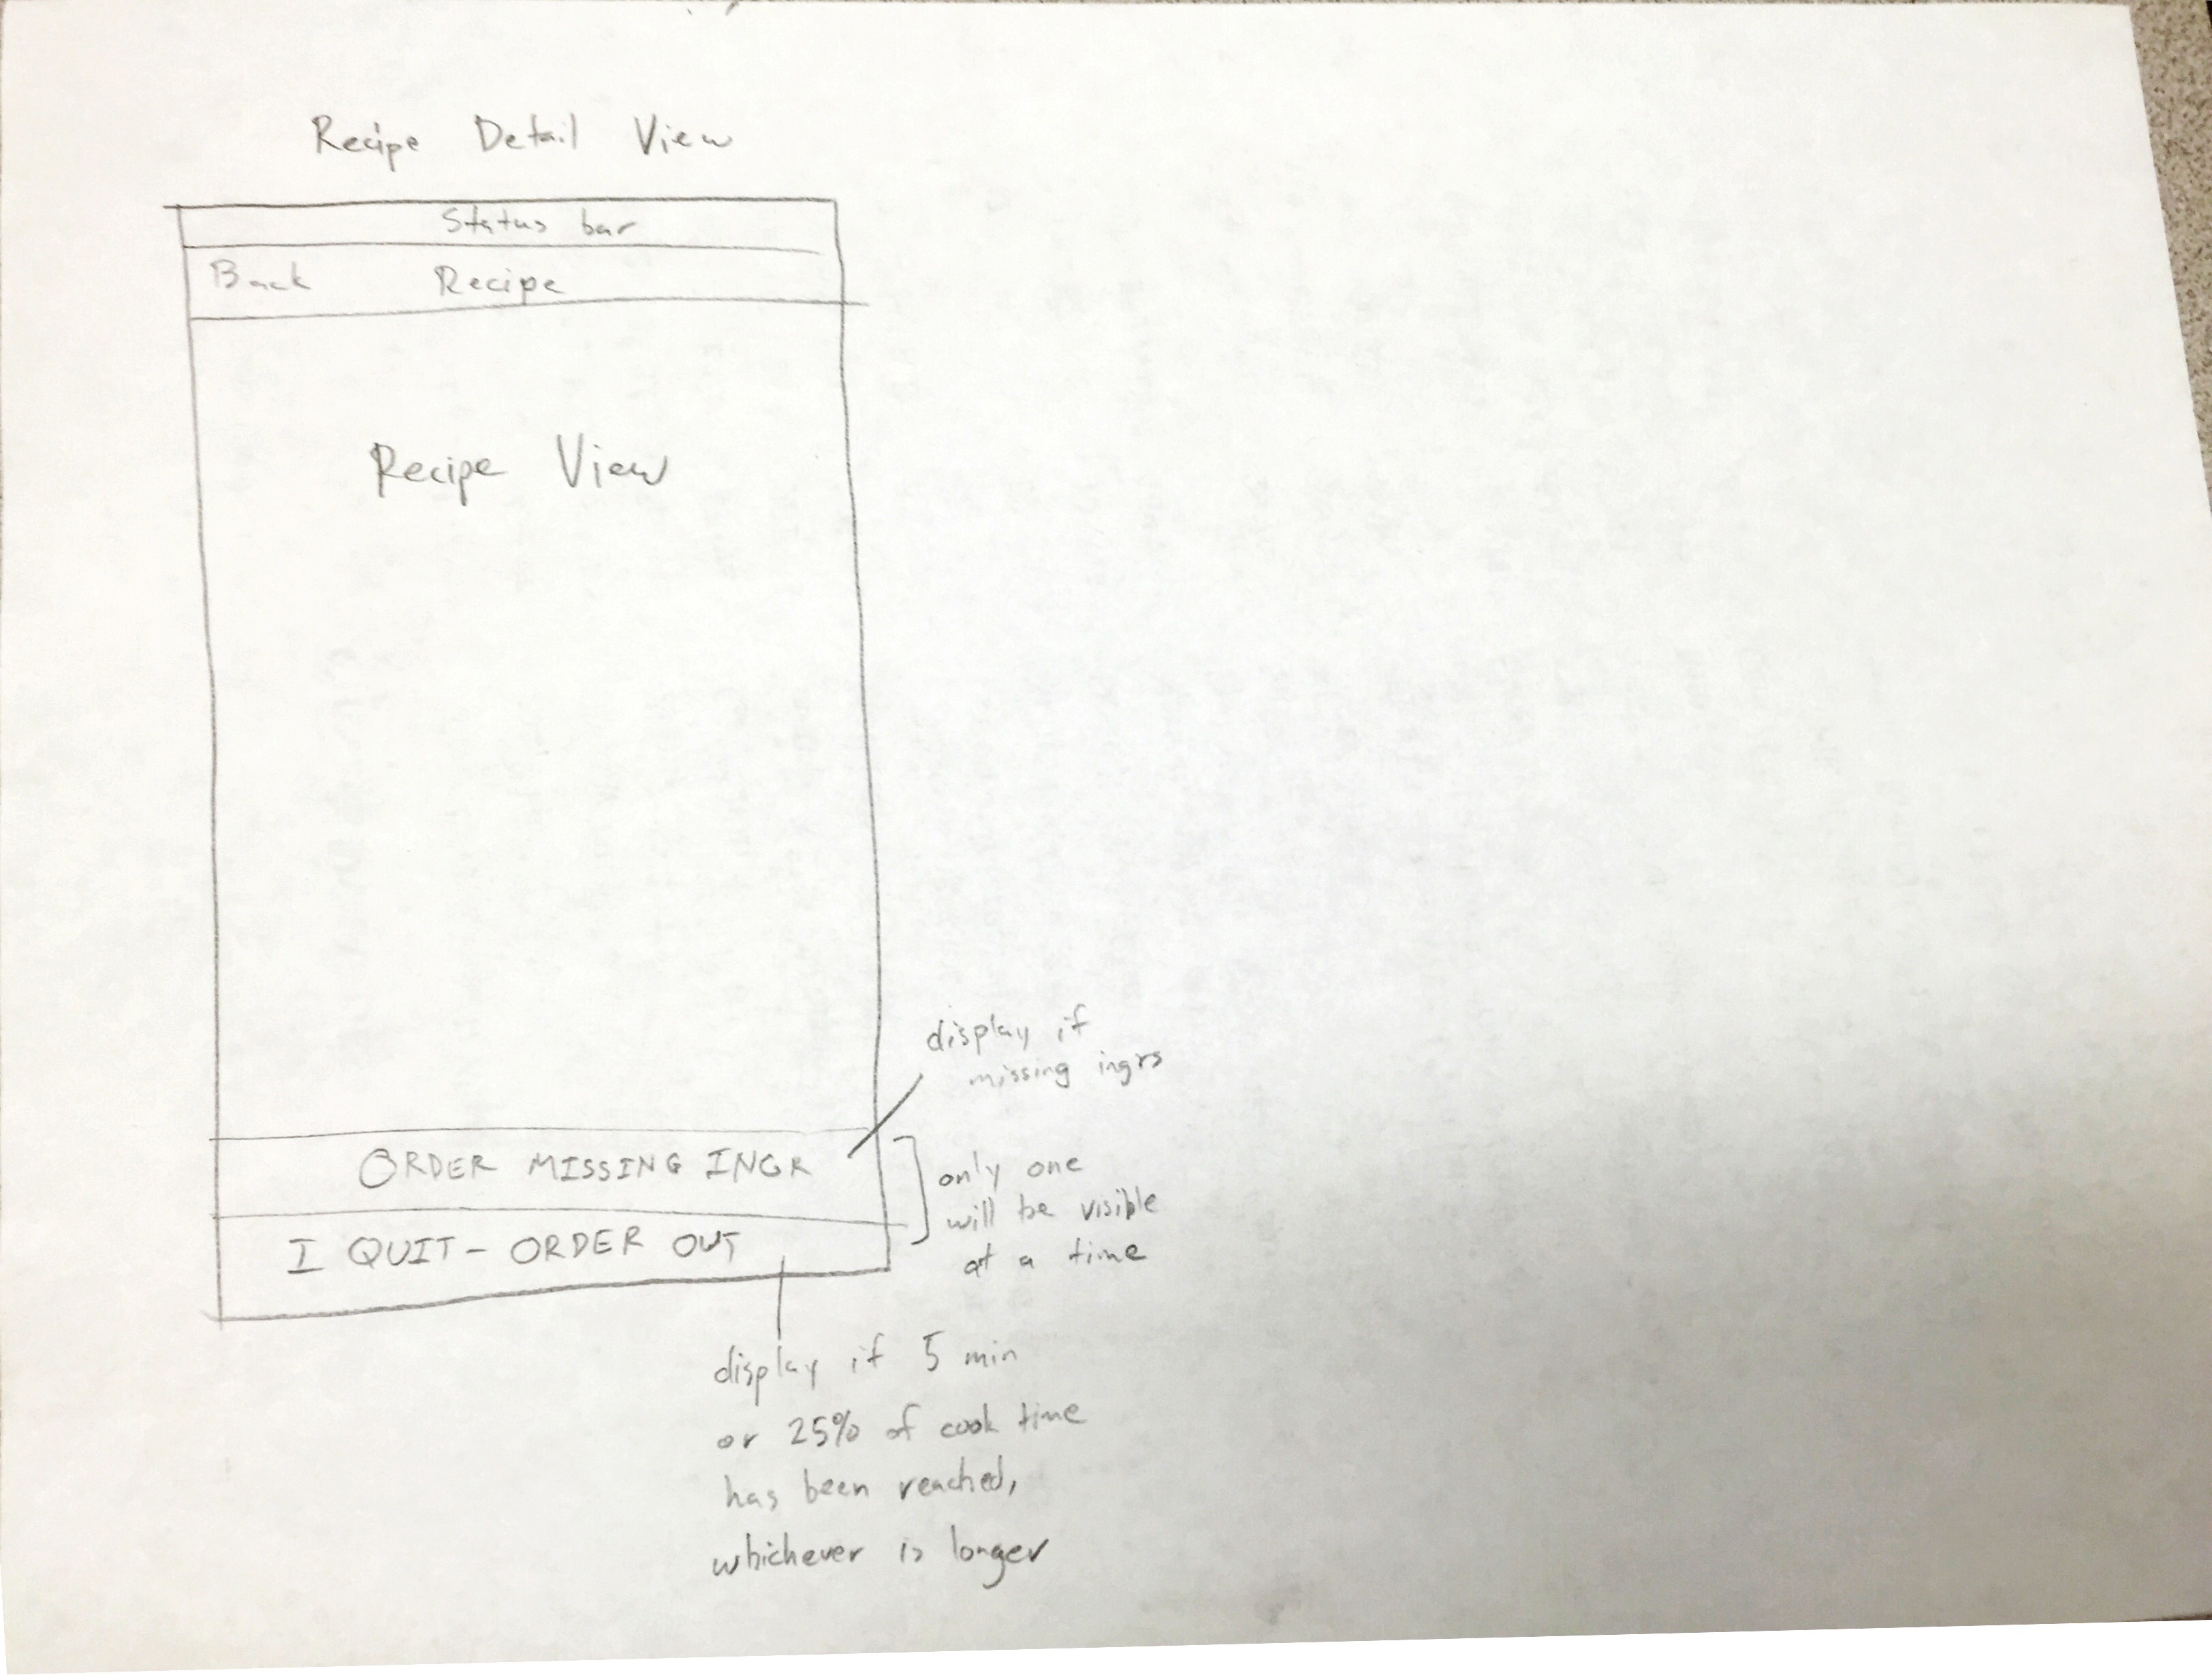 Recipe Detail View
Status bar
Back Recipe
Recipe View
display if
missing ingrs
ORDER MISSING INGR
only one
will be visible
at a time
I QUIT - ORDER OUT
display if 5 min
or 25% of cook time
has been reached,
whichever is longer